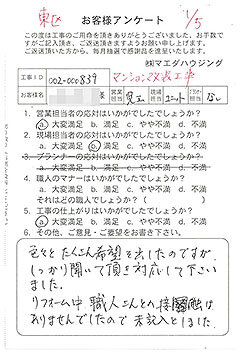 東区
お客様アンケート
1/5
この度は工事のご用命を頂きありがとうございました。お手数で
すがご記入頂き、ご返送頂きますようお願い申し上げます。
ご返送頂いた方から、毎月抽選で感謝品を進呈いたします。
㈱マエダハウジング
工事ID 002-000839 マンション改装工事
お客様名 営業担当 現場担当 工事担当
1. 営業担当者の応対はいかがでしたでしょうか?
a. 大変満足 b. 満足 c. やや不満 d. 不満
2. 現場担当者の応対はいかがでしたでしょうか?
a. 大変満足 b. 満足 c. やや不満 d. 不満
3. プランナーの応対はいかがでしたでしょうか?
a. 大変満足 b. 満足 c. やや不満 d. 不満
4. 職人のマナーはいかがでしたでしょうか?
a. 大変満足 b. 満足 c. やや不満 d. 不満
それはどの職人でしょうか?( )
5. 工事の仕上がりはいかがでしたでしょうか?
a. 大変満足 b. 満足 c. やや不満 d. 不満
6. その他、ご意見・ご要望をお書き下さい。
色々とたくさん希望を出したのですが、
しっかり聞いて頂き対応して下さい
ました。
リフォーム中 職人さんとの接触は
ありませんでしたので未記入としました。